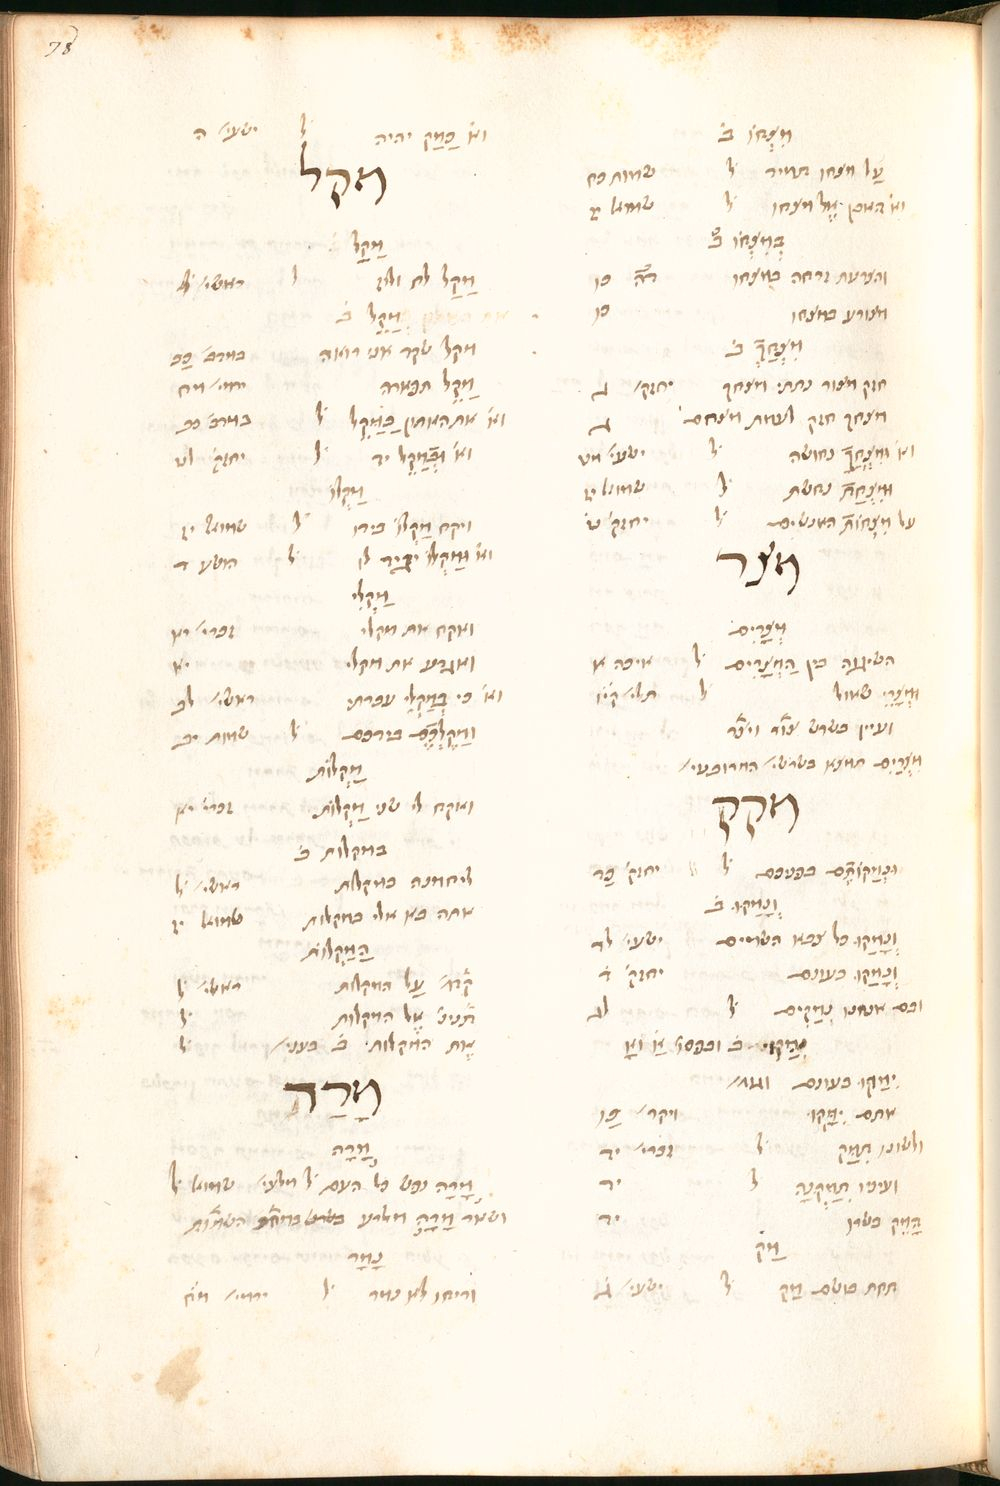 78
מִצְחוֹ ב׳
עַל מצחו תמיד ל׳ שמות כח
וא׳ האבן אֶל מצחו ל׳ שמוא׳ יז
בְּמִצְחוֹ ב׳
והצרעת זרחה במצחו דה׳ כו
מצורע במצחו כו
מִצְחֲךָ ב׳
חזק מצור נתתי מצחך יחזק׳ ג
מצחך חזק לעמת מצחם ג
וא׳ וּמִצְחֲךָ נחושה ל׳ ישעי׳ מט
וּמִצְחַת נחשת ל׳ שמוא׳ יז
על מִצְחוֹת האנשים ל׳ יחזק׳ ט׳
מצר
מְצָרִים
השיגוה בין הַמְצָרִים ל׳ איכה א
וּמְצָרֵי שאול ל׳ תלי׳ קיו
ועיין בשרש צור ויצר
מִצְרַיִם תמצא בשרשי׳ המרובעי׳
מקק
וּנְמַקּוֹתֶם בעונכם ל׳ יחזק׳ כד
וְנָמַקּוּ ב׳
וְנָמַקּוּ כל צבא השמים ישעי׳ לד
וְנָמַקּוּ בעונם יחזק׳ ד
ובם אנחנו נְמַקִּים ל׳ לג
יִמַּקּוּ ב׳ ובפסוק
יִמַּקּוּ בעונם
אתם יִמָּקּוּ ויקר׳ כו
ולשונו תִּמַּק ל׳ זכרי׳ יד
ועיניו תִּמַּקְנָה ל׳ יד
הָמֵק בשרו יד
מַק
תחת בושם מַק ל׳ ישעי׳ ג
וא׳ כַּמָּק יהיה ל׳ ישעי׳ ה
מקל
מַקֵּל ב׳
מַקַּל לח ולוז ל׳ ראשי׳ ל
מַקֵּל ב׳
מקל שקד אני רואה
מַקֵּל תפארה ירמי׳ מח
וא׳ את האתון בַּמַּקֵּל ל׳ במדב׳ כב
וא׳ וּבְמַקֵּל יד ל׳ יחזק׳ לט
מַקְלוֹ
ויקח מַקְלוֹ בידו ל׳ שמוא׳ יז
וא׳ וּמַקְלוֹ יַגִּיד לו ל׳ הושע ד
מַקְלִי
ואקח את מקלי זכרי׳ יא
ואגדע את מקלי יא
וא׳ כי בְמַקְלִי עברתי ראשי׳ לב
וּמַקֶּלְכֶם בידכם ל׳ שמות יב
מַקְלוֹת
ואקח לי שני מַקְלוֹת זכרי׳ יא
במקלות ב׳
ליחמנה במקלות ראשי׳ ל׳
אתה בא אלי במקלות שמוא׳ יז
הַמַּקְלוֹת
קדמ׳ עַל המקלות ראשי׳ ל
תנינ׳ אֶל המקלות ל׳
אֶת המקלות ב׳ בעני׳ ל׳
מָרַד
מָרָה
מָרָה נפש כל העם ל׳ מלעי׳ שמוא׳ ל׳
ושאר מָרָה מלרע
נָמָר
וריחו לא נמר ל׳ ירמי׳ מח